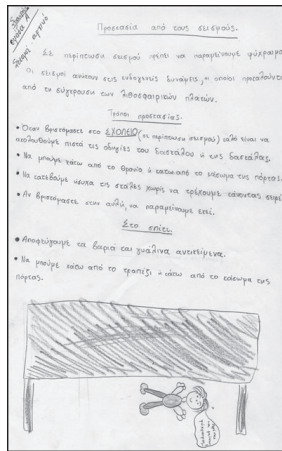 Προστασία από τους σεισμούς.
Σε περίπτωση σεισμού πρέπει να παραμείνουμε ψύχραιμοι
Οι σεισμοί ανήκουν στις ενδογενείς δυνάμεις, οι οποίοι προκαλούνται
από τη σύγκρουση των λιθοσφαιρικών πλακών.
Τρόποι προστασίας.
• Όταν βρισκόμαστε στο ΣΧΟΛΕΙΟ (σε περίπτωση σεισμού) καλό είναι να
ακολουθούμε πιστά τις οδηγίες του δασκάλου ή της δασκάλας.
• Να μπούμε κάτω από το θρανίο ή κάτω από το κάσωμα της πόρτας.
• Να κατεβούμε ήσυχα τις σκάλες χωρίς να τρέχουμε κάνοντας σειρά
• Αν βρισκόμαστε στην αυλή, να παραμείνουμε εκεί.
Στο σπίτι.
• Αποφεύγουμε τα βαριά και γυάλινα αντικείμενα.
• Να μπούμε κάτω από το τραπέζι ή κάτω από το κάσωμα της
πόρτας.